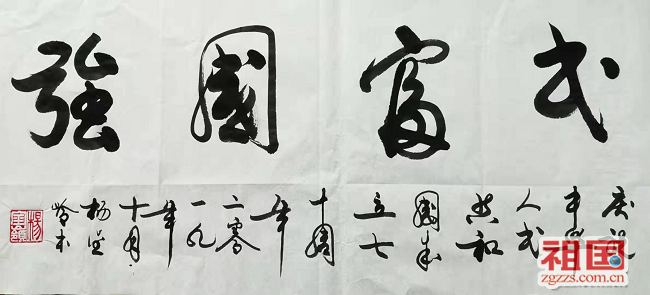 民富國強
庆祝
中华
人民
共和
國成
立七
十周
年
二零
一九
年
十月
杨
祖国
zgzzs.com.cn